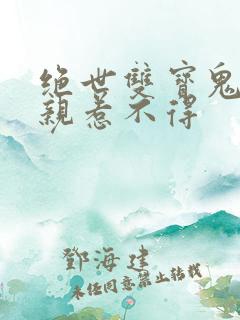 绝世雙寶鬼
親惹不得
鄧海建
未经同意禁止转载